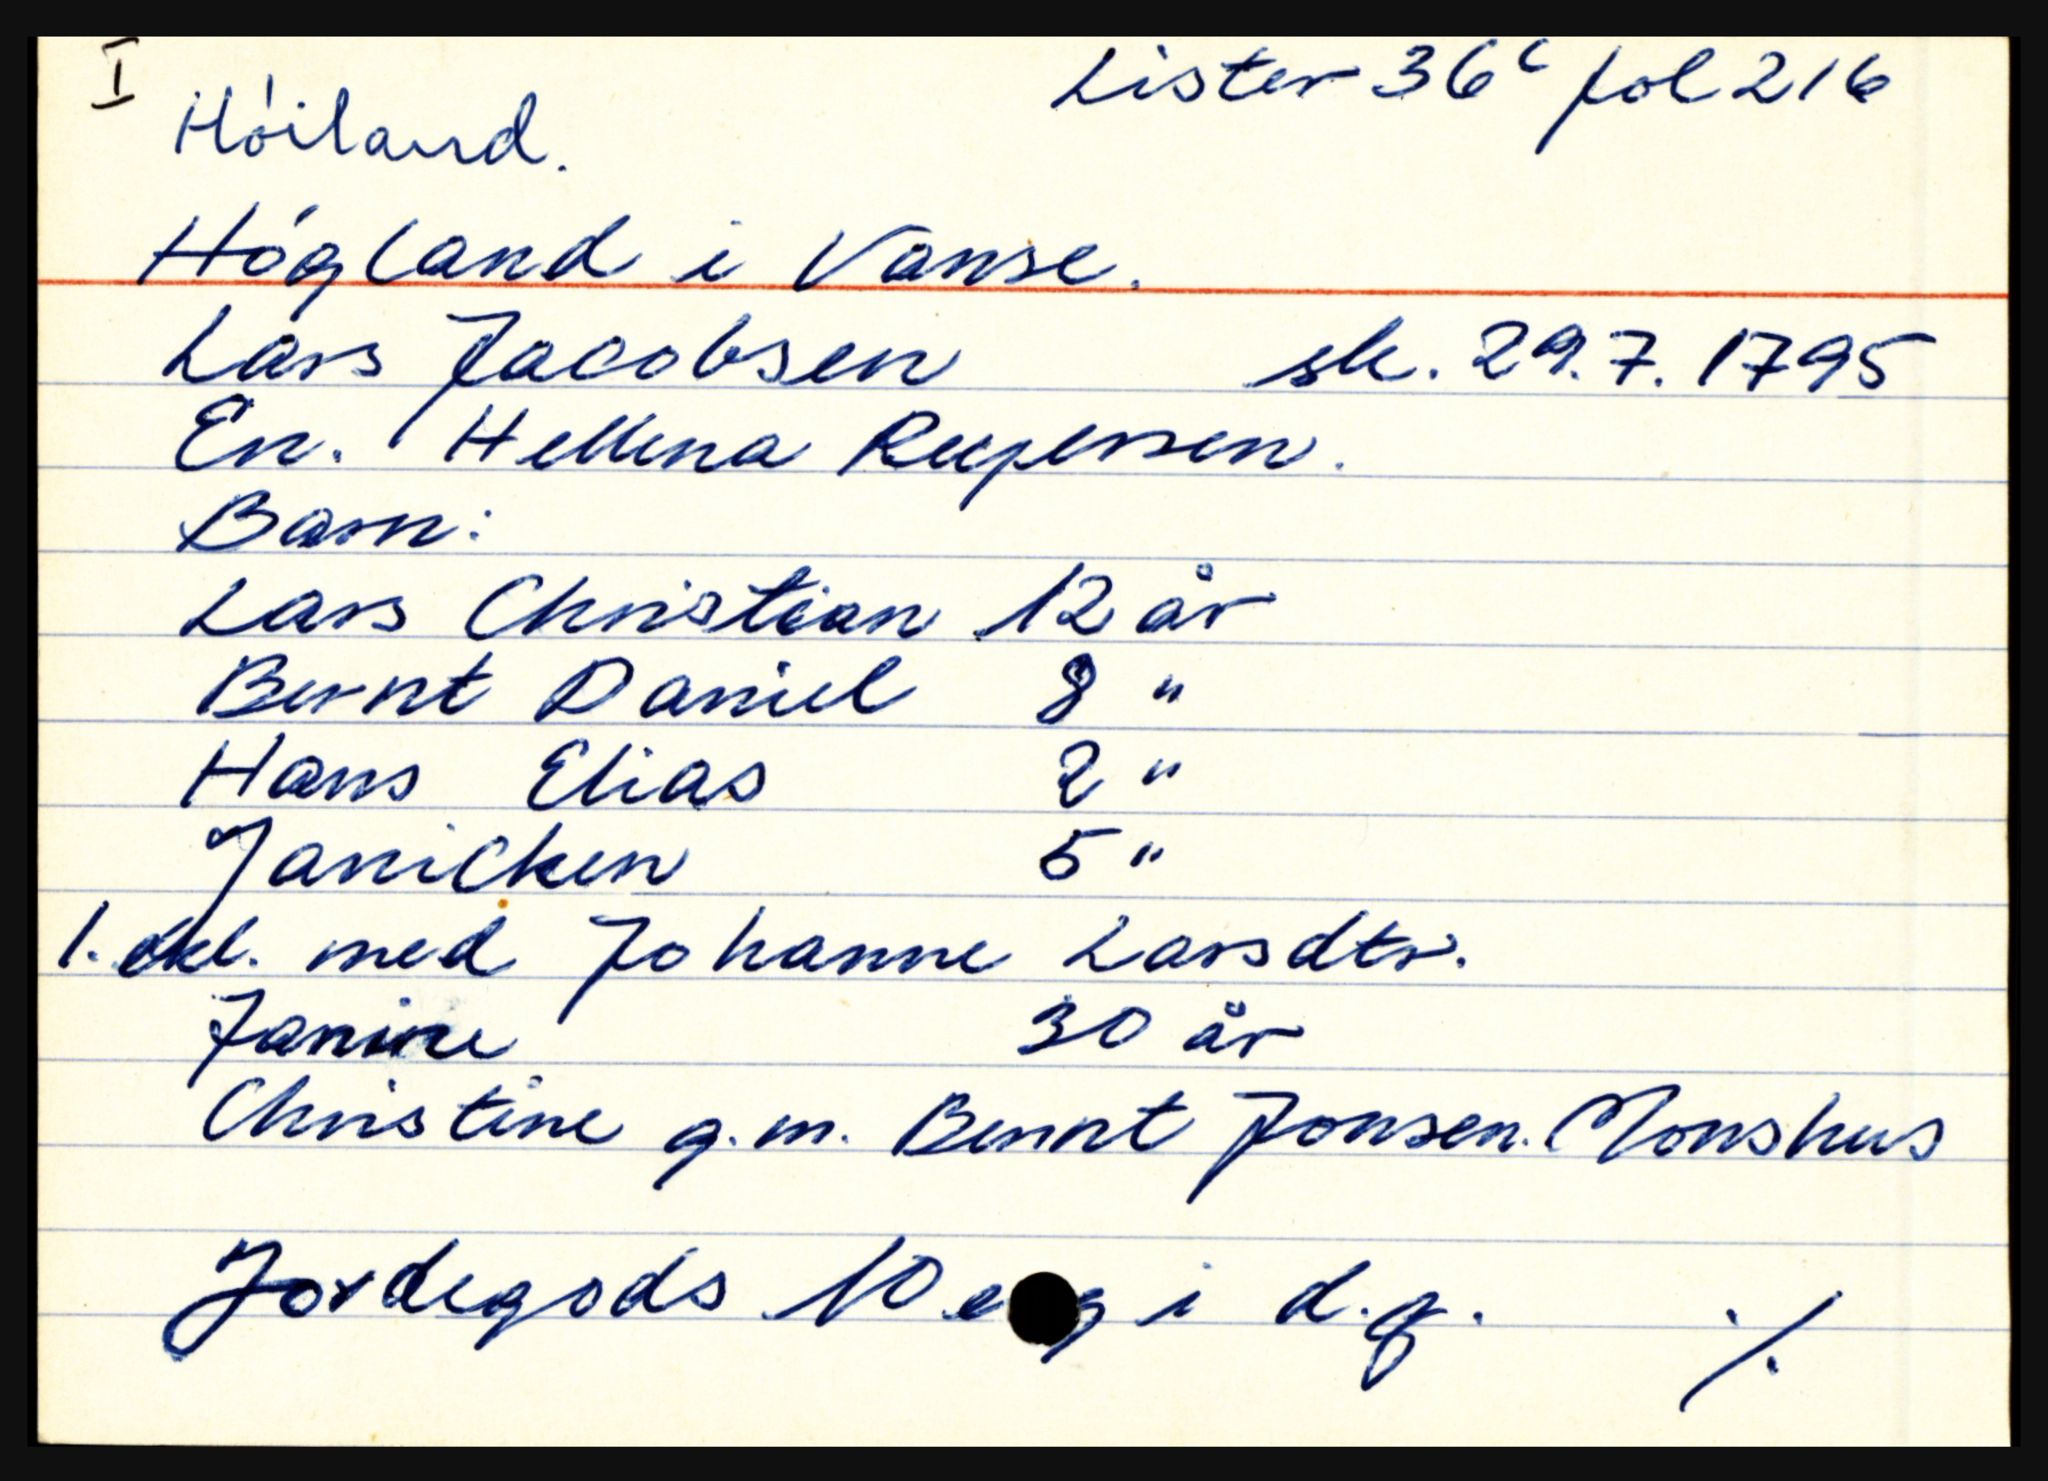 I Lister 36c fol 216
Høiland.
Høgland i Vanse.
Lars Jacobsen sk. 29.7.1795
En. Hellena
Barn:
Lars Christian 12 år
Bernt Daniel 8 "
Hans Elias 2 "
Janicken 5 "
1. ekt. med Johanne Larsdtr.
Janine 30 år
Christine g.m. Bernt Jonsen. Monshus
Jordegods 10 eng i d.g. ./.